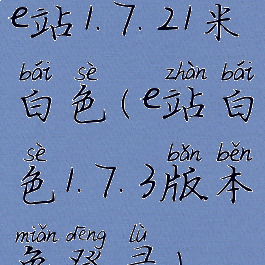 e站1.7.21米
bái sè zhàn bái
白色(e站白
sè bǎn běn
色1.7.3版本
miǎn dēng lù
免登录)